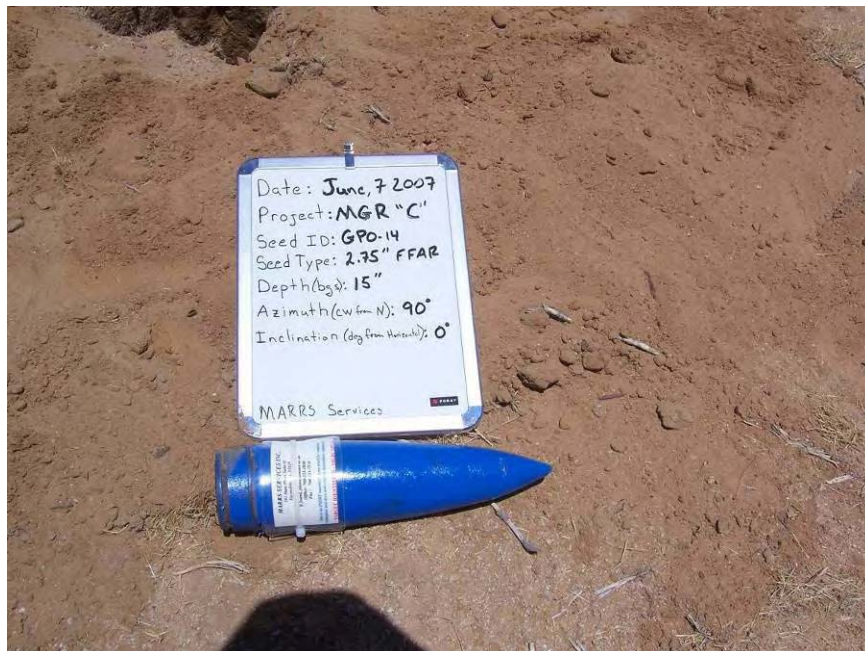 Date: June, 7 2007
Project: MGR "C"
Seed ID: GPO-14
Seed Type: 2.75" FFAR
Depth (bgs): 15"
Azimuth (cw from N): 90°
Inclination (deg from Horizontal): 0°
MARRS Services
MARRS SERVICES INC.